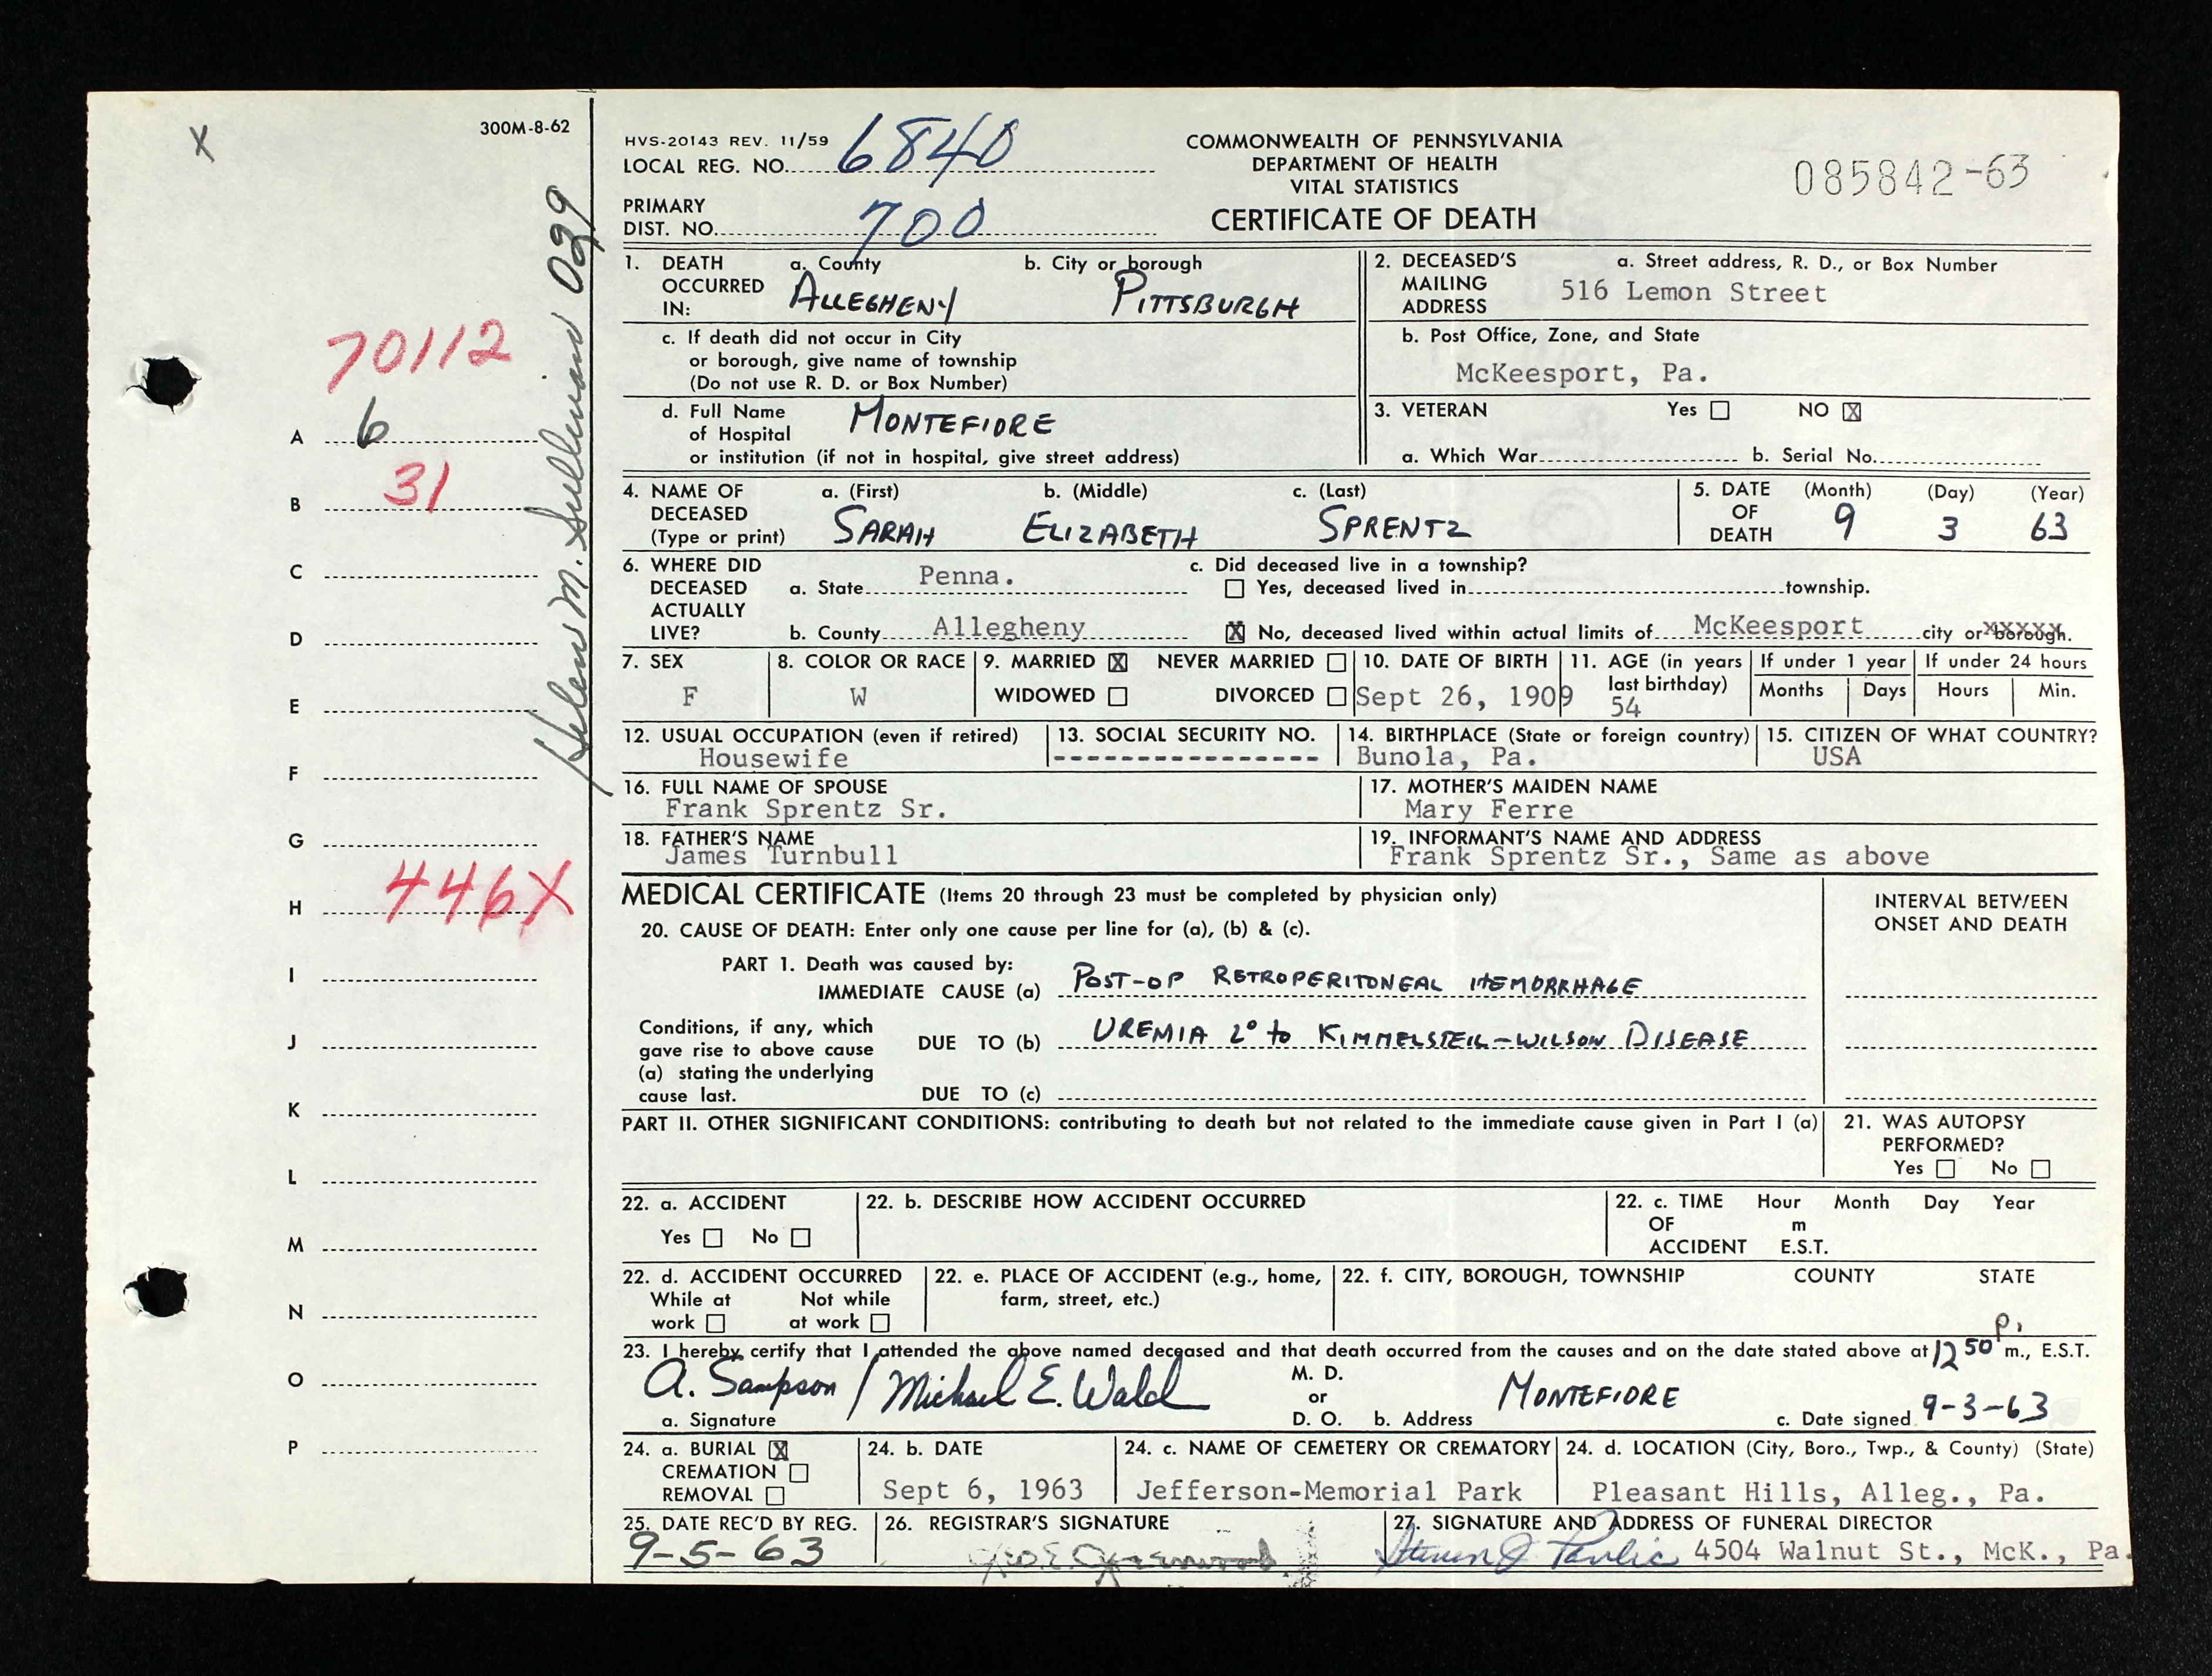 X
300M-8-62
70112
A 6
B 31
C
D
E
F
G
H 446X
I
J
K
L
M
N
O
P
Helen M.
HVS-20143 REV. 11/59
LOCAL REG. NO. 6840
PRIMARY
DIST. NO. 700
COMMONWEALTH OF PENNSYLVANIA
DEPARTMENT OF HEALTH
VITAL STATISTICS
CERTIFICATE OF DEATH
085842-63
1. DEATH OCCURRED IN:
a. County ALLEGHENY
b. City or borough PITTSBURGH
c. If death did not occur in City
or borough, give name of township
(Do not use R. D. or Box Number)
d. Full Name of Hospital MONTEFIORE
or institution (if not in hospital, give street address)
2. DECEASED'S MAILING ADDRESS
a. Street address, R. D., or Box Number
516 Lemon Street
b. Post Office, Zone, and State
McKeesport, Pa.
3. VETERAN Yes ☐ NO ☒
a. Which War b. Serial No.
4. NAME OF DECEASED (Type or print)
a. (First) b. (Middle) c. (Last)
SARAH ELIZABETH SPRENTZ
5. DATE OF DEATH (Month) (Day) (Year)
9 3 63
6. WHERE DID DECEASED ACTUALLY LIVE?
a. State Penna.
b. County Allegheny
c. Did deceased live in a township?
☐ Yes, deceased lived in township.
☒ No, deceased lived within actual limits of McKeesport city or borough.
7. SEX
F
8. COLOR OR RACE
W
9. MARRIED ☒ NEVER MARRIED ☐
WIDOWED ☐ DIVORCED ☐
10. DATE OF BIRTH
Sept 26, 1909
11. AGE (in years last birthday)
54
If under 1 year
Months Days
If under 24 hours
Hours Min.
12. USUAL OCCUPATION (even if retired)
Housewife
13. SOCIAL SECURITY NO.
----------------
14. BIRTHPLACE (State or foreign country)
Bunola, Pa.
15. CITIZEN OF WHAT COUNTRY?
USA
16. FULL NAME OF SPOUSE
Frank Sprentz Sr.
17. MOTHER'S MAIDEN NAME
Mary Ferre
18. FATHER'S NAME
James Turnbull
19. INFORMANT'S NAME AND ADDRESS
Frank Sprentz Sr., Same as above
MEDICAL CERTIFICATE (Items 20 through 23 must be completed by physician only)
INTERVAL BETWEEN
ONSET AND DEATH
20. CAUSE OF DEATH: Enter only one cause per line for (a), (b) & (c).
PART 1. Death was caused by:
IMMEDIATE CAUSE (a) POST-OP RETROPERITONEAL HEMORRHAGE
Conditions, if any, which
gave rise to above cause
(a) stating the underlying
cause last.
DUE TO (b) UREMIA 2° to KIMMELSTEIL-WILSON DISEASE
DUE TO (c)
PART II. OTHER SIGNIFICANT CONDITIONS: contributing to death but not related to the immediate cause given in Part I (a)
21. WAS AUTOPSY
PERFORMED?
Yes ☐ No ☐
22. a. ACCIDENT
Yes ☐ No ☐
22. b. DESCRIBE HOW ACCIDENT OCCURRED
22. c. TIME OF ACCIDENT Hour Month Day Year
m
E.S.T.
22. d. ACCIDENT OCCURRED
While at work ☐ Not while at work ☐
22. e. PLACE OF ACCIDENT (e.g., home,
farm, street, etc.)
22. f. CITY, BOROUGH, TOWNSHIP COUNTY STATE
23. I hereby certify that I attended the above named deceased and that death occurred from the causes and on the date stated above at 12 50 P. m., E.S.T.
A. Sampson / Michael E. Wald
a. Signature
M. D.
or
D. O.
b. Address MONTEFIORE
c. Date signed 9-3-63
24. a. BURIAL ☒
CREMATION ☐
REMOVAL ☐
24. b. DATE
Sept 6, 1963
24. c. NAME OF CEMETERY OR CREMATORY
Jefferson-Memorial Park
24. d. LOCATION (City, Boro., Twp., & County) (State)
Pleasant Hills, Alleg., Pa.
25. DATE REC'D BY REG.
9-5-63
26. REGISTRAR'S SIGNATURE
27. SIGNATURE AND ADDRESS OF FUNERAL DIRECTOR
Steven J Pavlic 4504 Walnut St., McK., Pa.